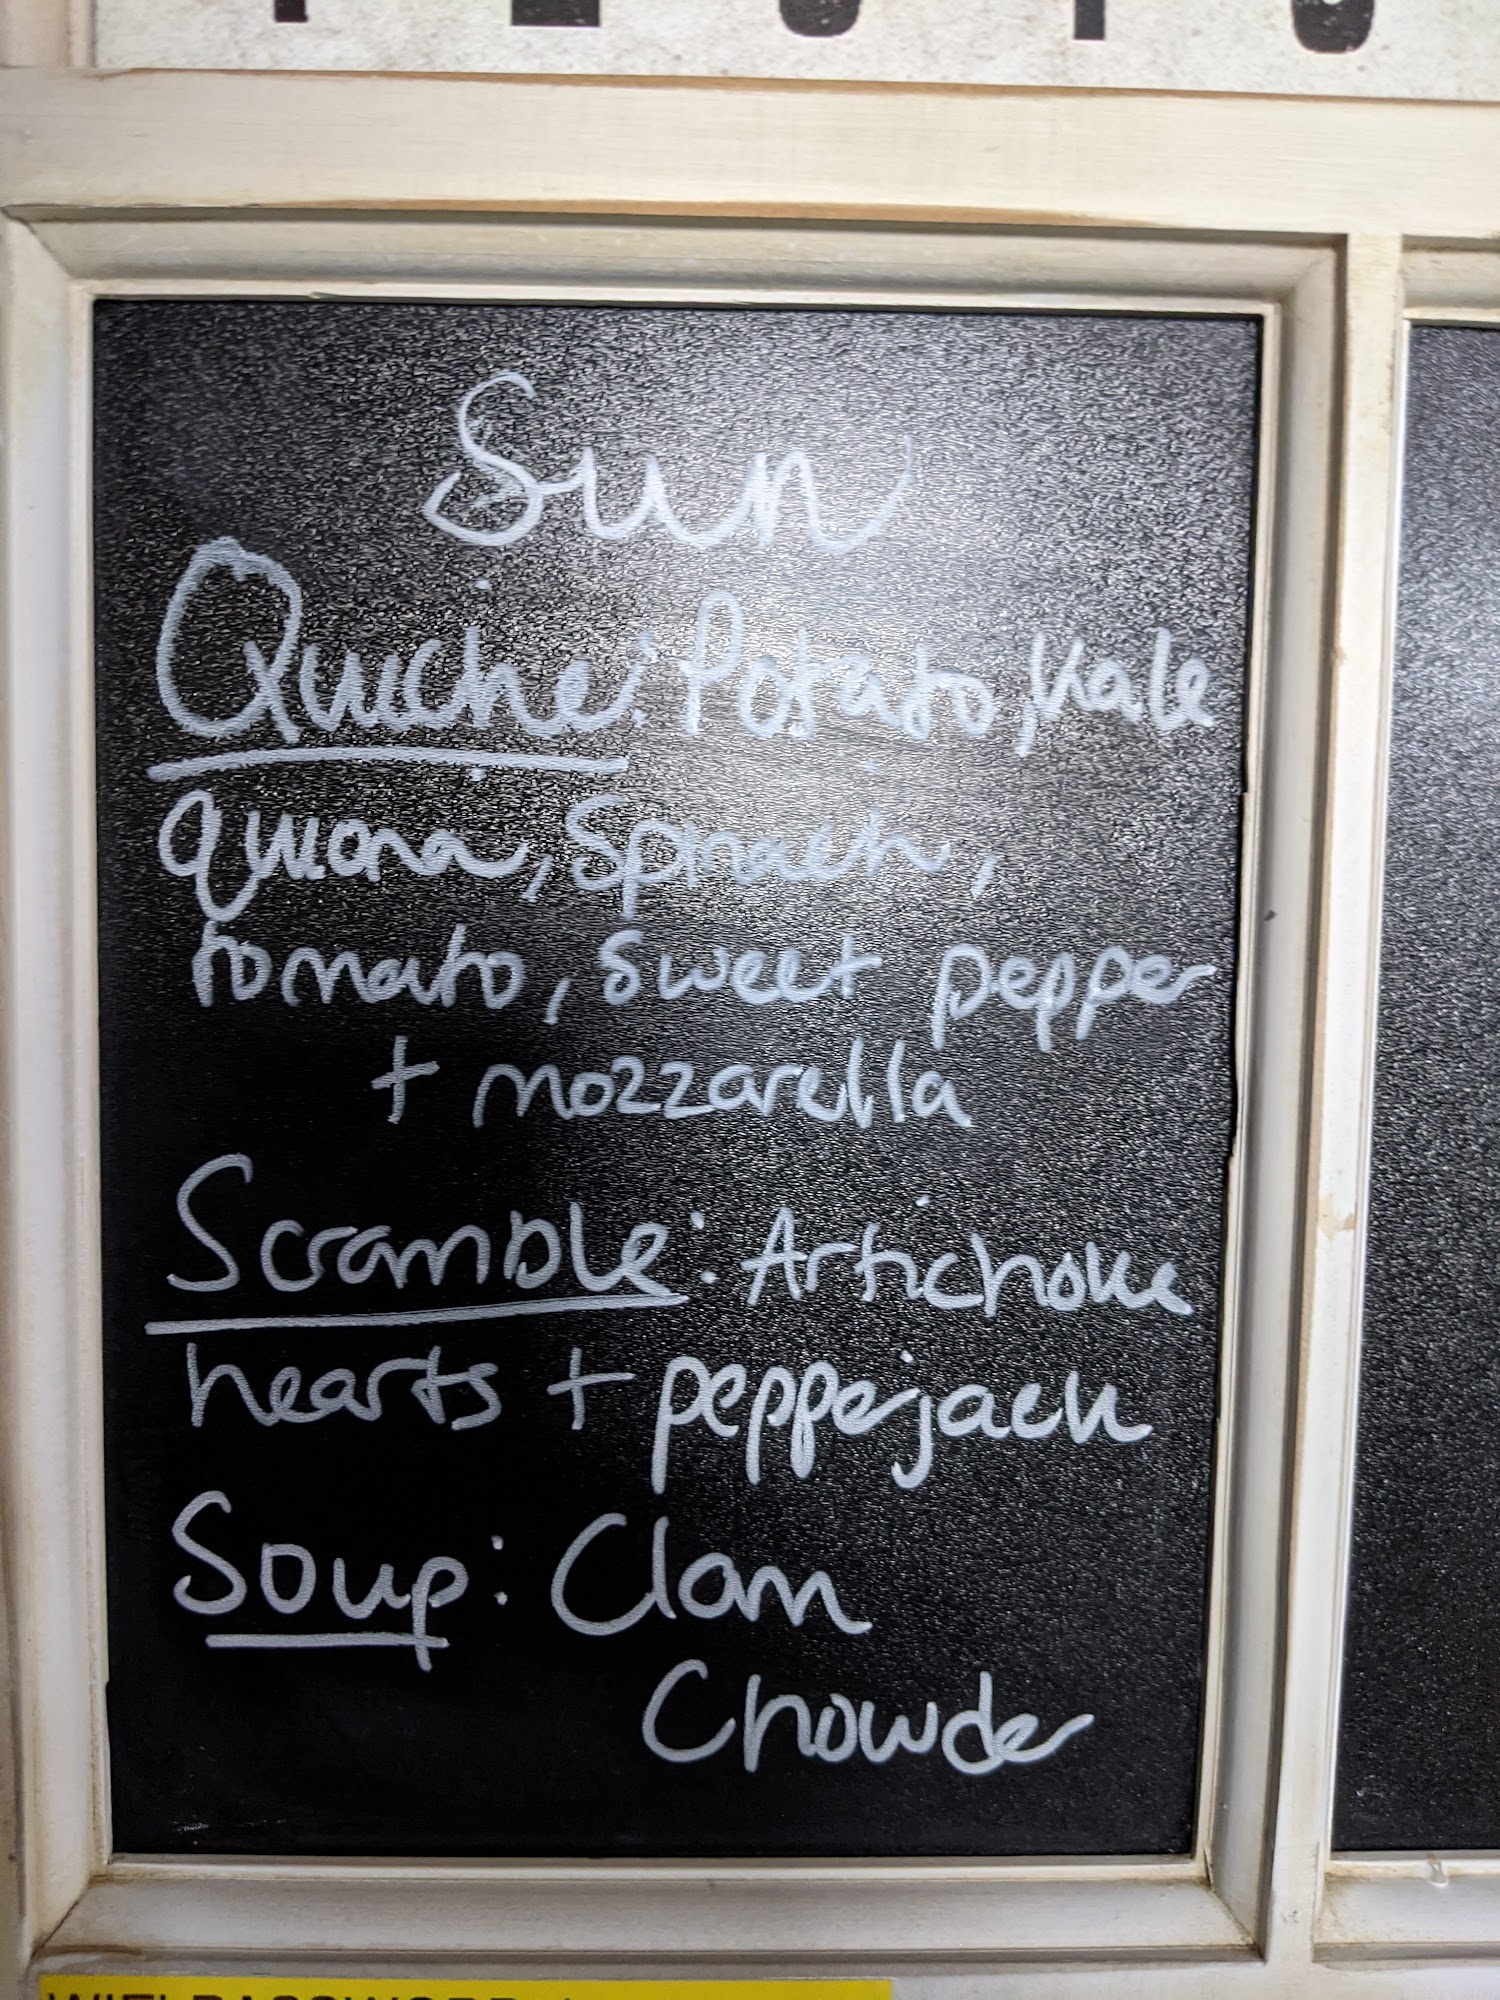 Sun
Quiche: Potato, Kale
quiona, Spinach,
tomato, sweet pepper
+ mozzarella
Scramble: Artichoke
hearts + pepperjack
Soup: Clam
Chowder